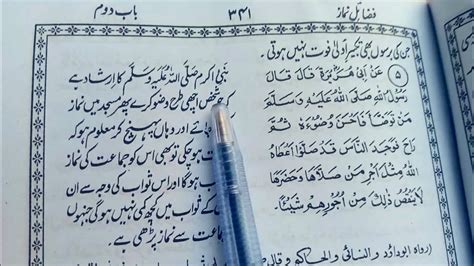 فضائل نماز
۳۴۱
باب دوم
جن کی برسوں بھی تکبیر اولیٰ فوت نہیں ہوتی۔
⑤ عَنْ اَبِیْ هُرَیْرَةَ قَالَ قَالَ
رَسُوْلُ اللهِ صَلَّی اللهُ عَلَیْهِ وَسَلَّمَ
مَنْ تَوَضَّأَ فَاَحْسَنَ وُضُوْءَهٗ ثُمَّ
رَاحَ فَوَجَدَ النَّاسَ قَدْ صَلَّوْا اَعْطَاهُ
اللهُ مِثْلَ اَجْرِ مَنْ صَلَّاهَا وَحَضَرَهَا
لَا یَنْقُصُ ذٰلِكَ مِنْ اُجُوْرِهِمْ شَیْئًا۔
(رواه ابوداؤد و النسائی و الحاکم و قال
نبی اکرم صَلَّی اللهُ عَلَیْهِ وَسَلَّمَ کا ارشاد ہے
کہ جو شخص اچھی طرح وضو کرے پھر مسجد میں نماز
جائے اور وہاں پہنچ کر معلوم ہو کہ
ہو چکی تو بھی اس کو جماعت کی نماز
ہوگا اور اس ثواب کی وجہ سے ان
کے ثواب میں کچھ کمی نہیں ہوگی جنہوں
جماعت سے نماز پڑھی ہے۔